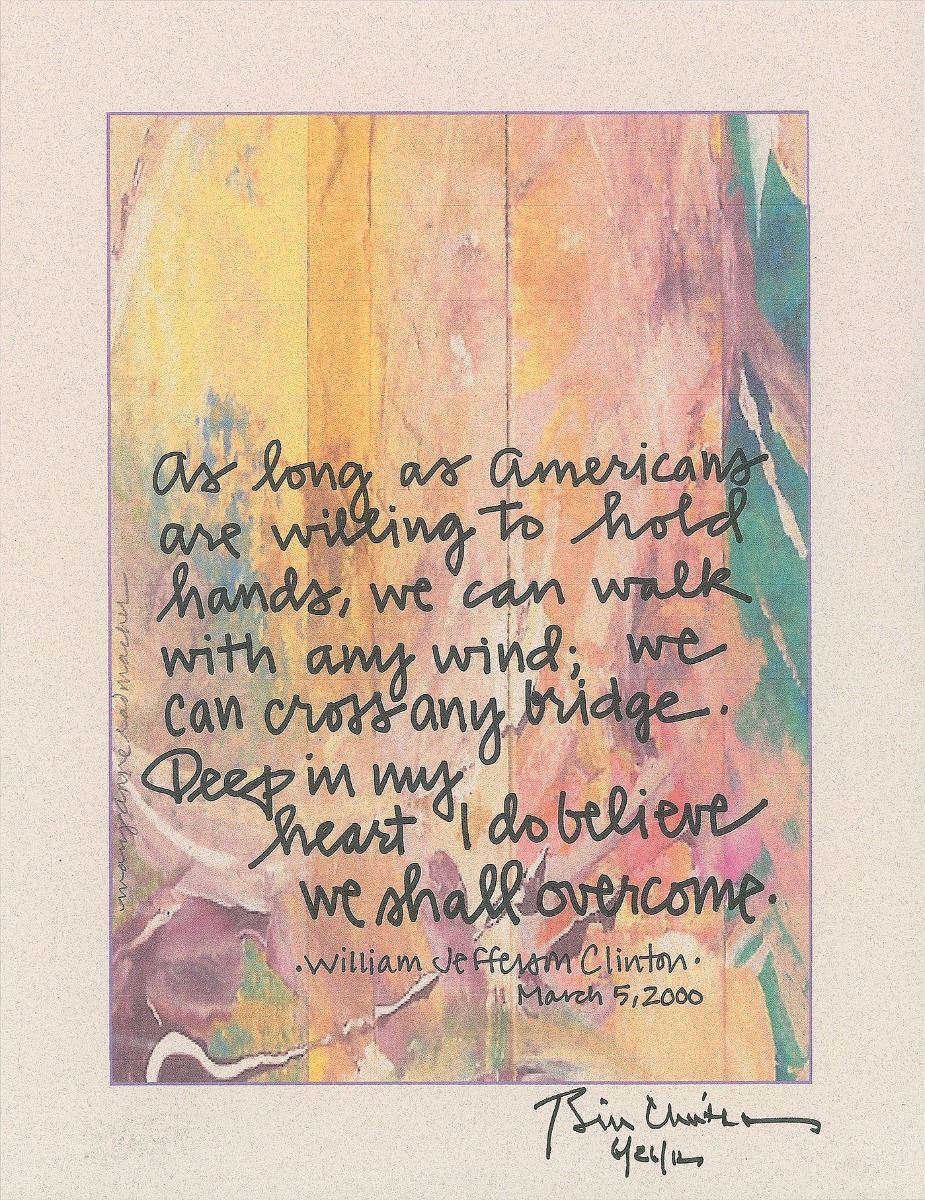 As long as Americans
are willing to hold
hands, we can walk
with any wind; we
can cross any bridge.
Deep in my
heart I do believe
we shall overcome.
·William Jefferson Clinton·
March 5, 2000
maryanne radmacher
Bill Clinton